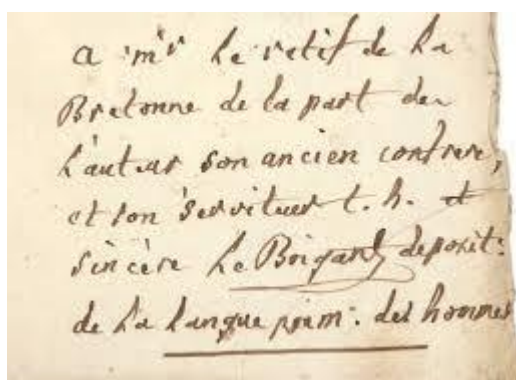 a mr le retif de la
Bretonne de la part de
l'auteur son ancien confrere,
et son serviteur t. h. et
sincère Le Brigant deposit:
de la langue prim: des hommes